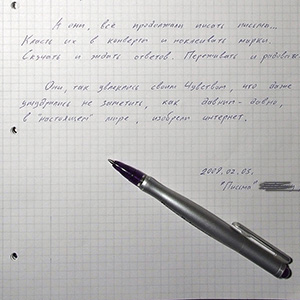 А они, всё продолжали писать письма...
Класть их в конверты и наклеивать марки.
Скучать и ждать ответов. Переживать и радоваться.
Они, так увлеклись своим Чувством, что даже
умудрились не заметить, как давным-давно,
в "настоящем" мире, изобрели интернет.
2009.02.05.
"Письма"